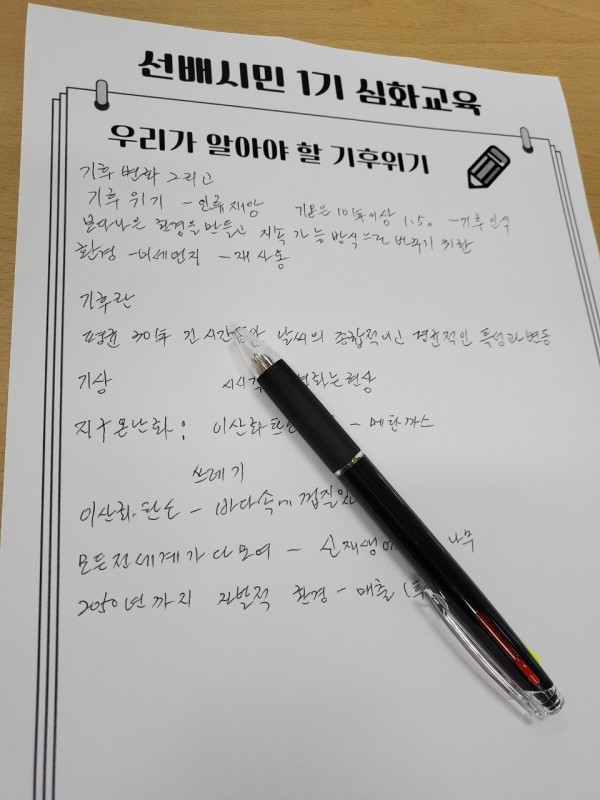 선배시민 1기 심화교육
우리가 알아야 할 기후위기
기후 변화 그리고
기후 위기 - 인류재앙 기온은 이상 1.5° - 기후인식
보다나은 환경을 만들고 지속 가능 방식으로 바꾸기 위한
환경 - 미세먼지 - 재 사용
기후란
평균 30年 긴 시간 날씨의 종합적이고 평균적인 특성과 변동
기상 변화는 현상
지구온난화 : 이산화탄 - 메탄까스
쓰레기
이산화탄소 - 바다속에 껍질
모든전세계가 다모여 - 신재생 나무
2050년까지 자발적 환경 - 매출